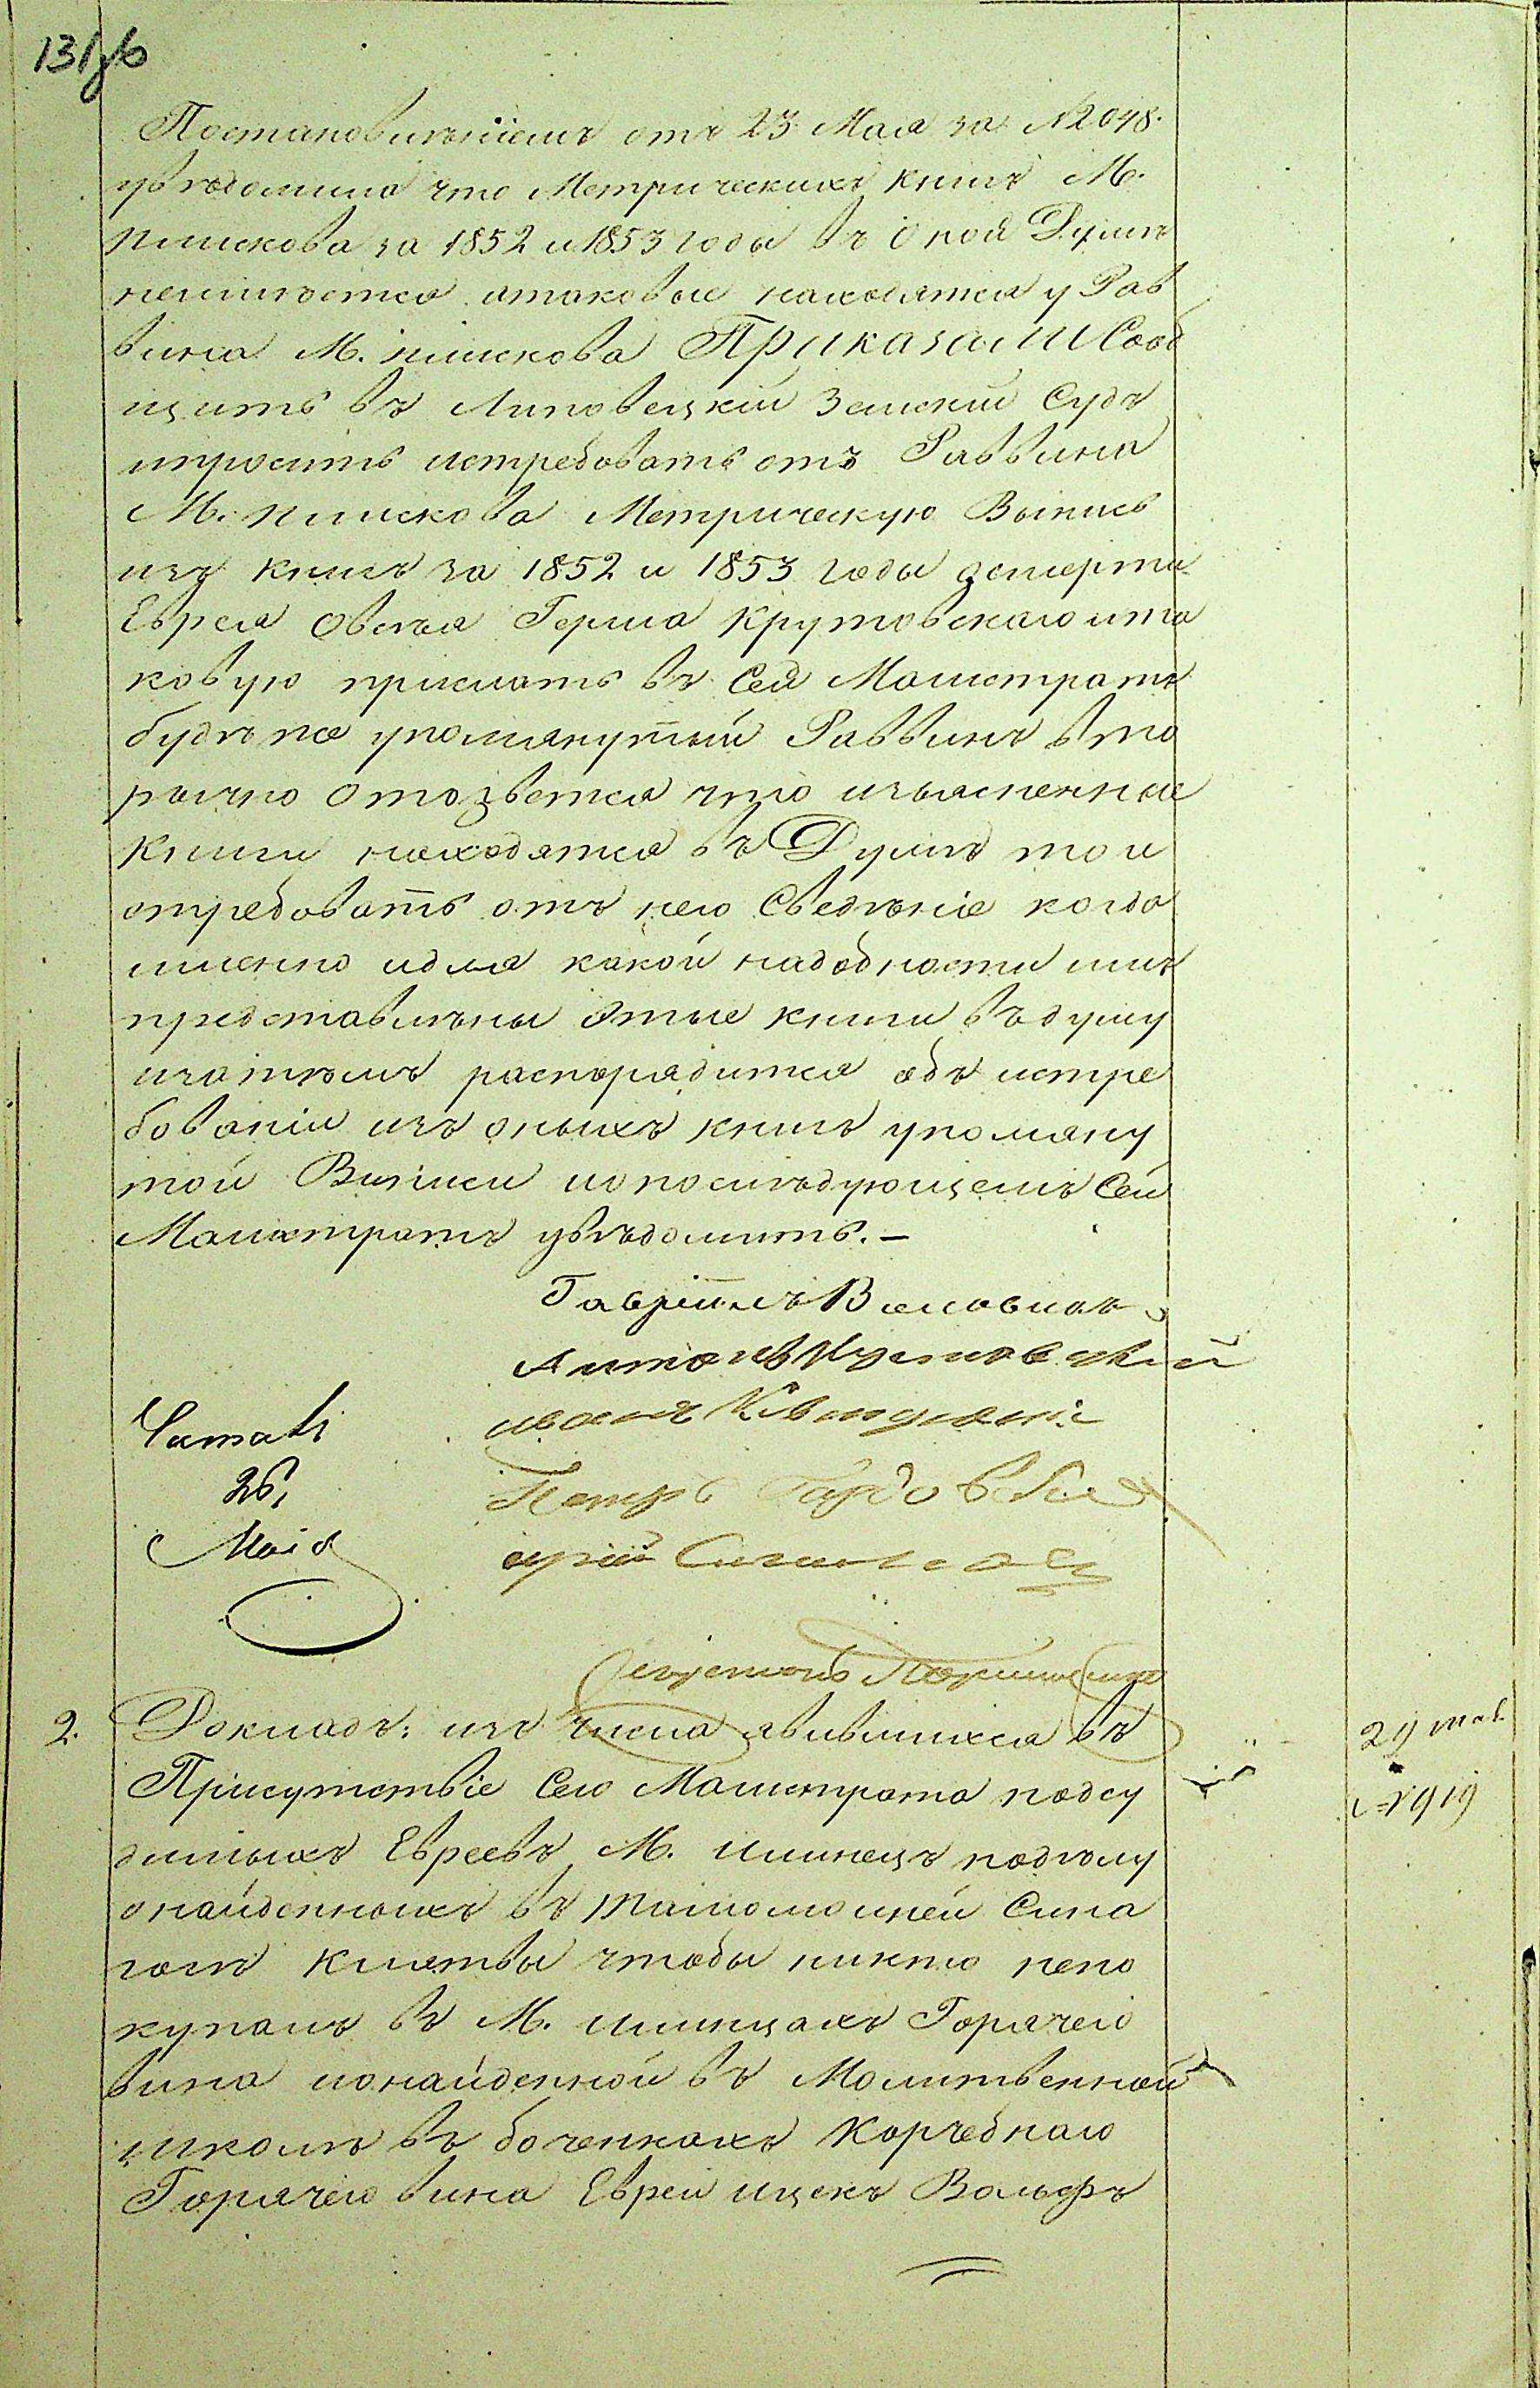 131 зв
Постановленіемъ отъ 23 Мая за № 2048.
увѣдомила что Метрическихъ книгъ М.
Плискова за 1852 и 1853 годы въ Оной Думѣ
неимѣется атаковые находятся у Рав
вина М. плискова Приказали Сооб
щить въ Липовецкій Земскій Судъ
ипросить истребовать отъ Раввина
М. плискова Метрическую Выпись
изъ книгъ за 1852 и 1853 годы осмерти
Еврея Овсѣя Герша Крутовскаго ита
ковую прислать въ Сей Магистратъ
будѣ же упомянутый Раввинъ вто
рично отозвется что изъясненные
книги находятся въ Думѣ то и
отребовать отъ него Сведѣніе когда
именно идля какой надобности имъ
представлѣны этые книги въ думу
изатѣмъ распорядится объ истре
бованіи изъ оныхъ книгъ упомяну
той Выписи ипослѣдующемъ Сей
Магистратъ увѣдомить. —
Гавріилъ
Антонъ
иванъ
Петръ
26,
Мая
2. Докладъ: изъ числа явившихся въ
Присутствіе Сего Магистрата подсу
димыхъ Евреевъ М. Илинецъ поделу
онайденныхъ въ тамошней Сина
гогѣ Клятвы чтобы никто непо
купалъ въ М. Илинцахъ Горячего
вина ионайденной въ Молитвенной
школѣ въ боченкахъ Корчебнаго
Горячего вина Евреи ицекъ Вольфъ